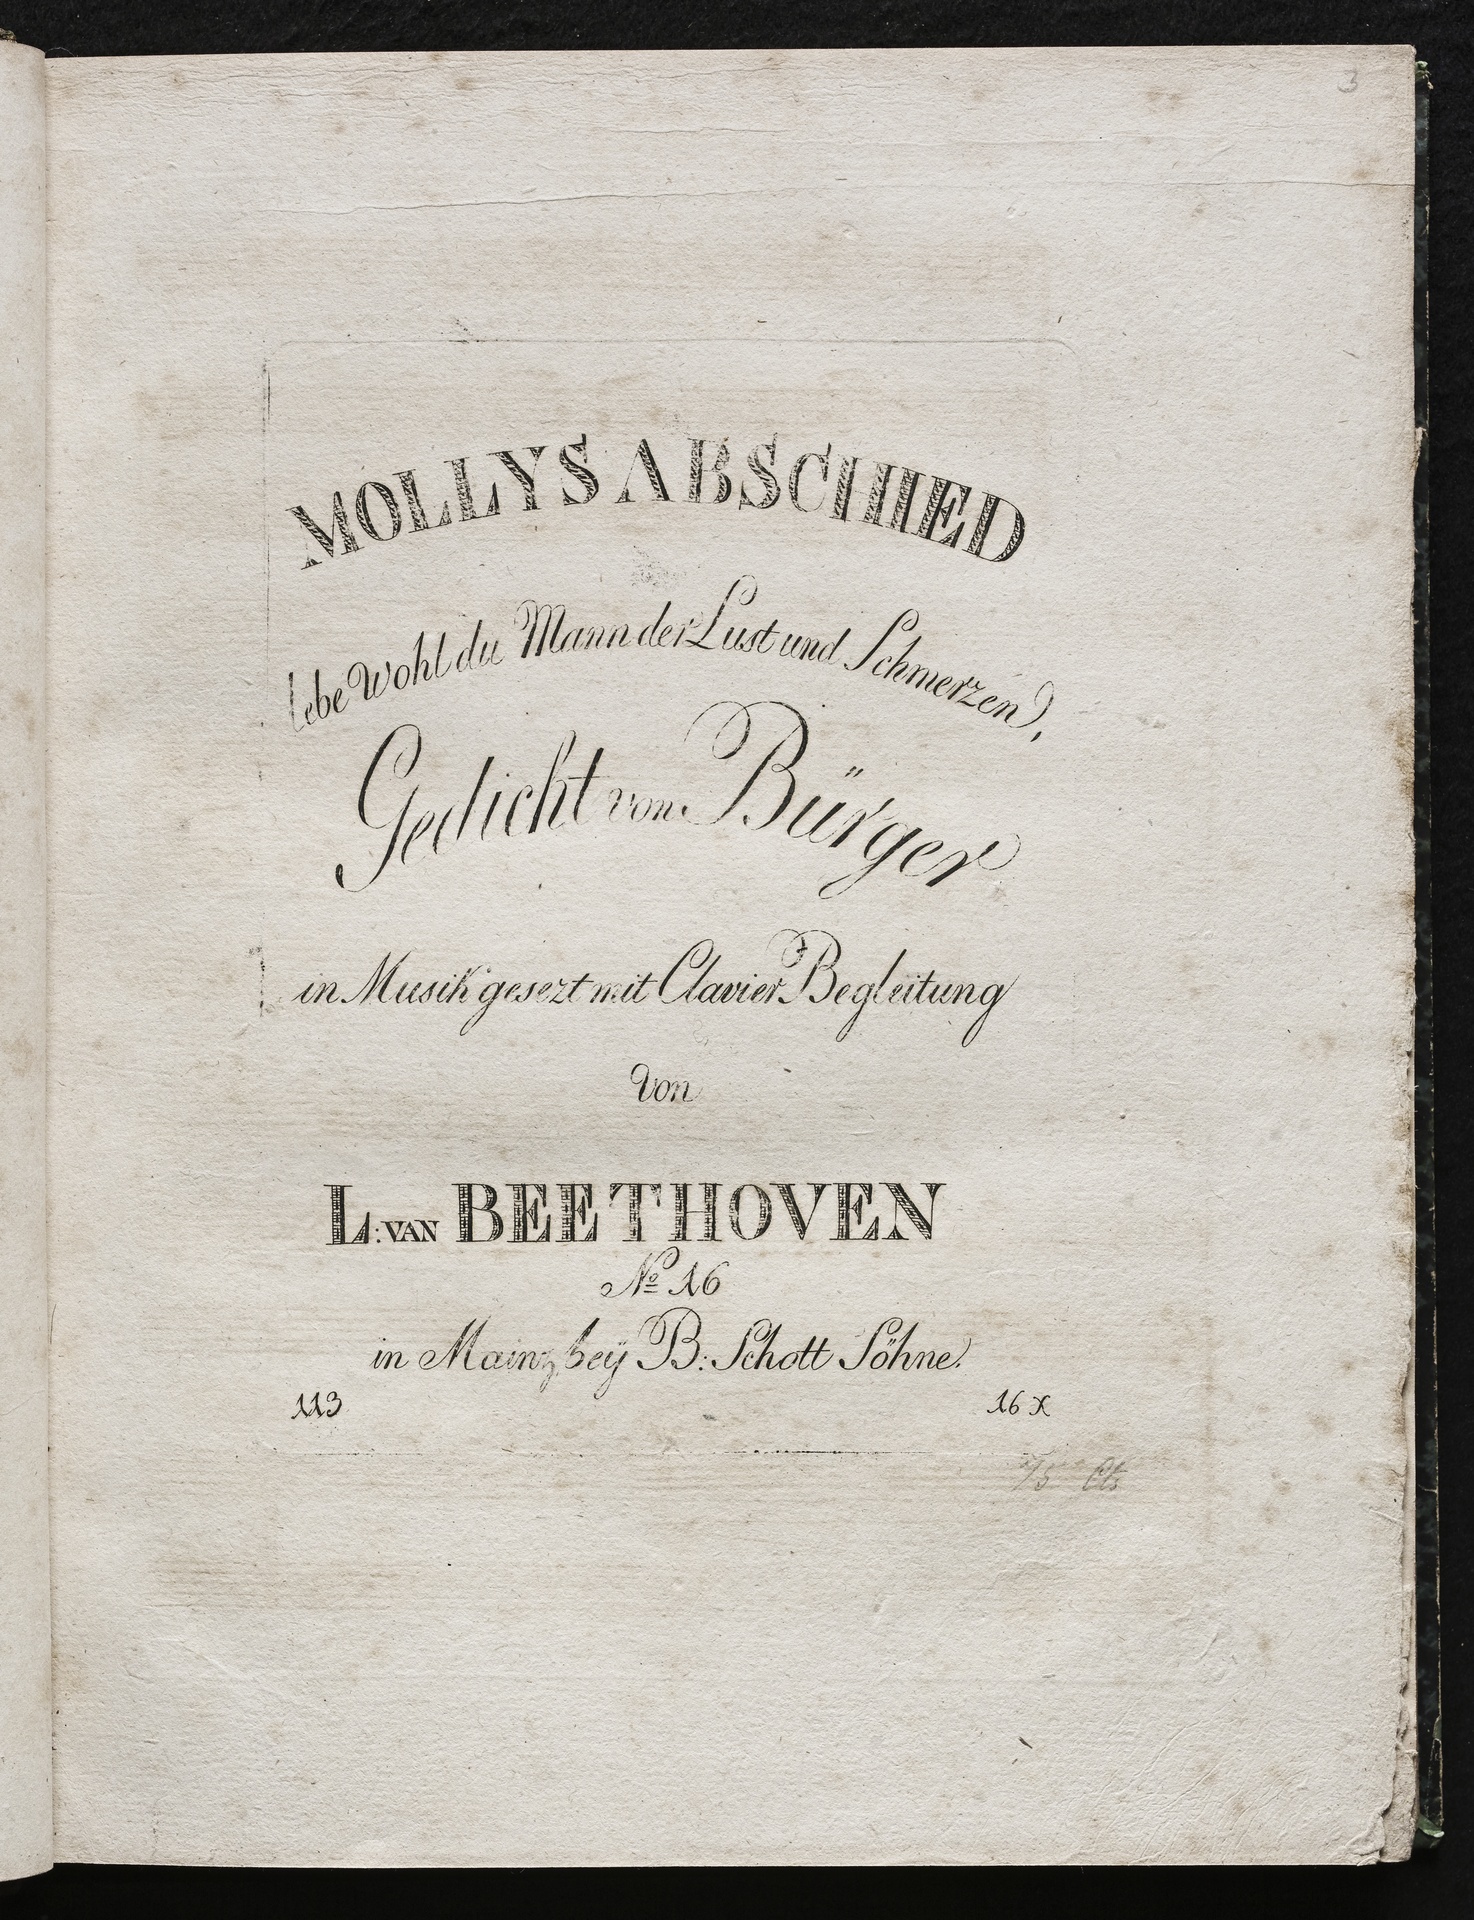 3
MOLLYS ABSCHIED
(lebe Wohl du Mann der Lust und Schmerzen),
Gedicht von Bürger
in Musik gesezt mit Clavier Begleitung
von
L: VAN BEETHOVEN
No 16
in Mainz beÿ B: Schott Söhne.
113
16 x
Cts